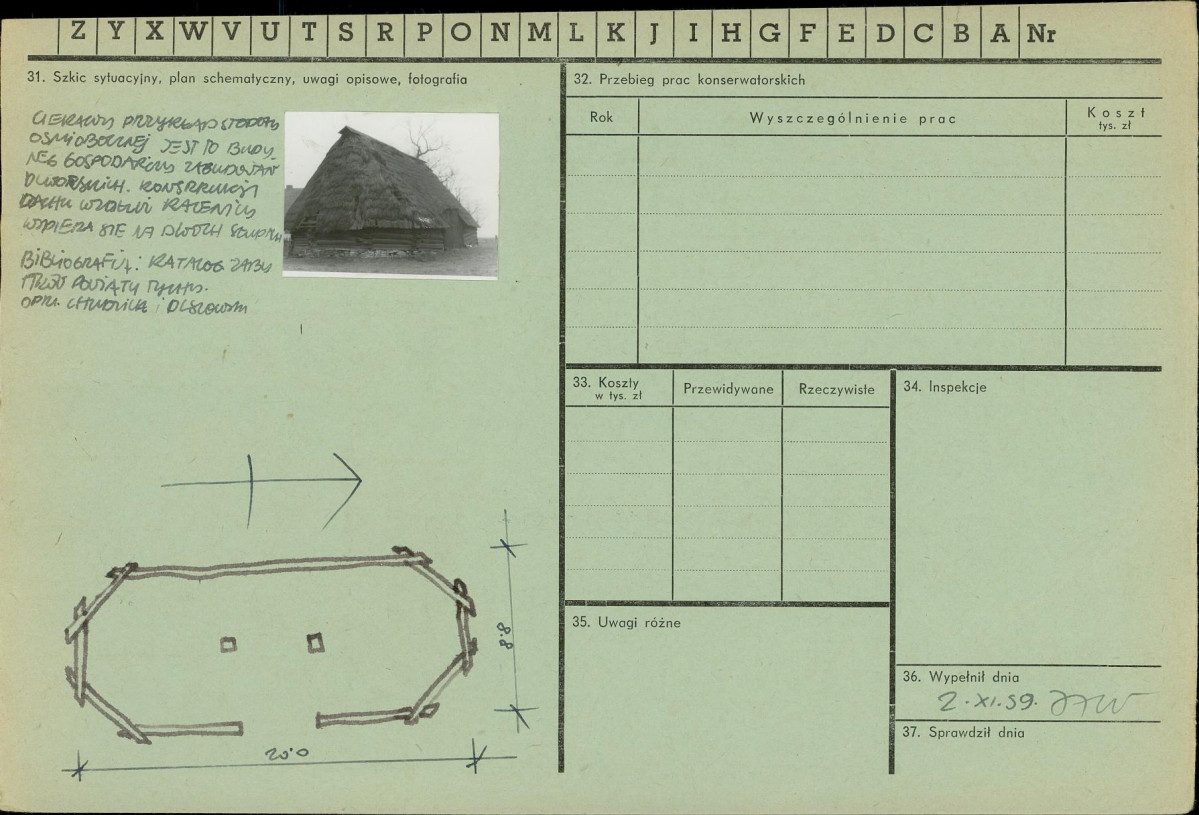 Z Y X W V U T S R P O N M L K J I H G F E D C B A Nr
31. Szkic sytuacyjny, plan schematyczny, uwagi opisowe, fotografia
CIEKAWY PRZYKŁAD STODOŁY
OŚMIOBOCZNEJ JEST TO BUDY
NEG GOSPODARCZY ZABUDOWAŃ
DWORSKICH. KONSTRUKCJA
DACHU
WSPIERA SIĘ NA DWÓCH SŁUPACH
BIBLIOGRAFIA: KATALOG ZABY
TKÓW POWIATU
OPR. i
20.0
8.8
32. Przebieg prac konserwatorskich
Rok
Wyszczególnienie prac
Koszt
tys. zł
33. Koszty
w tys. zł
Przewidywane
Rzeczywiste
34. Inspekcje
35. Uwagi różne
36. Wypełnił dnia
2.XI.59.
37. Sprawdził dnia